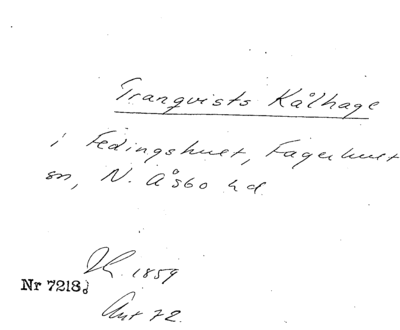 Tranqvists Kålhage
i Fedingshult, Fagerhult
sn, N. Åsbo hd.
1859
Nr 7218
Ant 72.